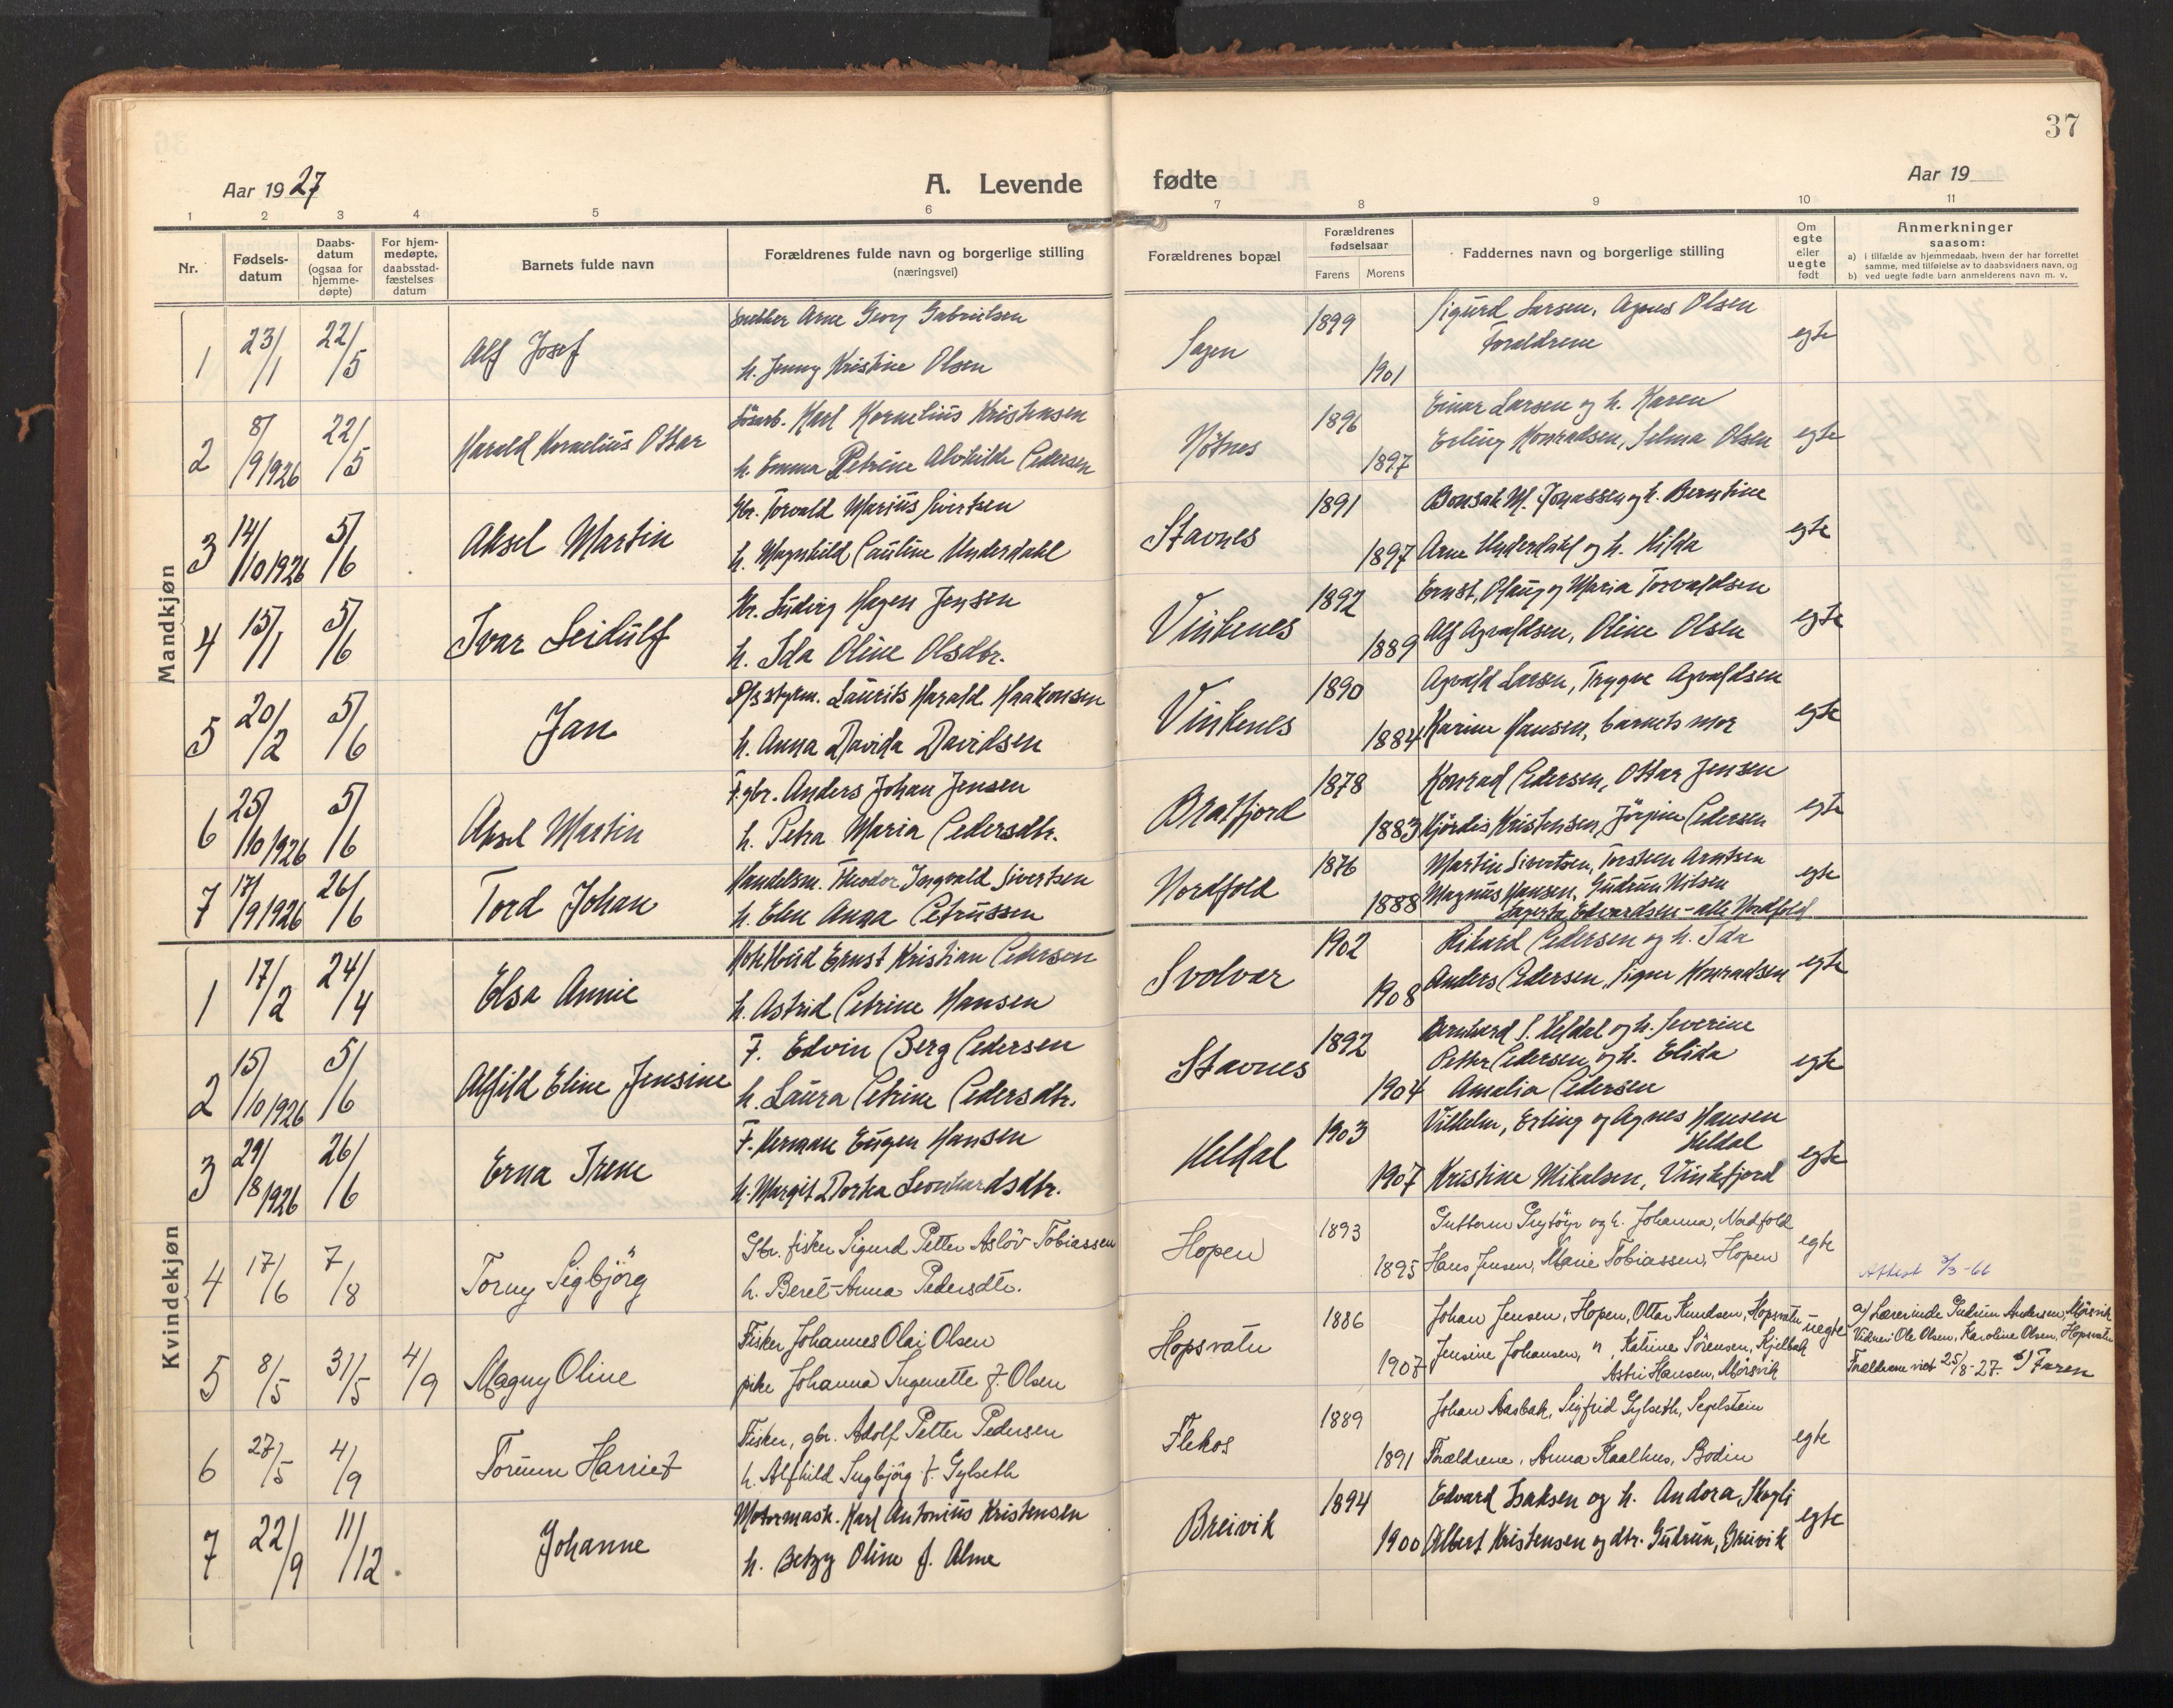 37
Aar 1927
A. Levende fødte
Aar 19
1 2 3 4 5 6 7 8 9 10 11
Nr.
Fødsels-
datum
Daabs-
datum
(ogsaa for
hjemme-
døpte)
For hjem-
medøpte,
daabsstad-
fæstelses
datum
Barnets fulde navn
Forældrenes fulde navn og borgerlige stilling
(næringsvei)
Forældrenes bopæl
Forældrenes
fødselsaar
Farens Morens
Faddernes navn og borgerlige stilling
Om
egte
eller
uegte
født
Anmerkninger
saasom:
a) i tilfælde av hjemmedaab, hvem der har forrettet
samme, med tilføielse av to daabsvidners navn, og
b) ved uegte fødte barn anmelderens navn m. v.
Mandkjøn
1 23/1 22/5 Alf Josef
Arne Georg Gabrielsen
h. Jenny Kristine Olsen
Sagen 1899 1901
Sigurd Larsen, Agnes Olsen
Foreldrene
egte
2 8/9 1926 22/5 Harald Kornelius Ottar
Løsarb. Karl Kornelius Kristensen
h. Emma Petrine Alvhilde Pedersen
Nötnes 1896 1897
Einar Larsen og h. Karen
Erling Konradsen, Selma Olsen
egte
3 14/10 1926 5/6 Aksel Martin
Gbr. Torvald Marius Sivertsen
h. Magnhild Pauline Underdahl
Stavnes 1891 1897
Bonsak M. Jonassen og h. Berntine
Arne Underdahl og h. Hilda
egte
4 15/1 5/6 Ivar Leidulf
Gbr. Ludvig Hagen Jensen
h. Ida Oline Olsdtr.
Vinkenes 1892 1889
Ernst, Olaug og Maria Torvaldsen
Alf Agvaldsen, Oline Olsen
egte
5 20/2 5/6 Jan
D/s styrm. Laurits Harald Haakonsen
h. Anna Davida Davidsen
Vinkenes 1890 1884
Agvald Larsen, Trygve Agvaldsen
Karine Hansen, barnets mor
egte
6 25/10 1926 5/6 Aksel Martin
F. gbr. Anders Johan Jensen
h. Petra Maria Pedersdtr.
Bratfjord 1878 1883
Konrad Pedersen, Ottar Jensen
Hjördis Kristensen, Jörgine Pedersen
egte
7 17/9 1926 26/6 Tord Johan
Handelsm. Theodor Ingvald Sivertsen
h. Elen Anna Petrussen
Nordfold 1876 1888
Martin Sivertsen, Torstein Arntsen
Magnus Hansen, Gudrun Nilsen
Lagerta Edvardsen - alle Nordfold
egte
Kvindekjøn
1 17/2 24/4 Elsa Annie
Ernst Kristian Pedersen
h. Astrid Petrine Hansen
Svolvær 1902 1908
Rikard Pedersen og h. Ida
Anders Pedersen, Signe Konradsen
egte
2 15/10 1926 5/6 Alfild Eline Jensine
F. Edvin Berg Pedersen
h. Laura Petrine Pedersdtr.
Stavnes 1892 1904
Bernhard S. Heldal og h. Severine
Petter Pedersen og h. Elida
Amalia Pedersen
egte
3 29/8 1926 26/6 Erna Irene
F. Herman Eugen Hansen
h. Margit Dortea Leonhardsdtr.
Heldal 1903 1907
Vilhelm, Erling og Agnes Hansen
Heldal
Kristine Mikalsen, Vinkfjord
egte
4 17/6 7/8 Torny Sigbjörg
Gbr. fisker Sigurd Petter Asløv Tobiassen
h. Beret-Anna Pedersdtr.
Hopen 1893 1895
Guttorm Prytöyr og h. Johanna, Nordfold
Hans Jensen, Marie Tobiassen, Hopen
egte
Attest 3/3-66
5 8/5 31/5 4/9 Magny Oline
Fisker Johannes Olai Olsen
pike Johanna Ingenette f. Olsen
Hopsvatn 1886 1907
Johan Jensen, Hopen, Ottar Knudsen, Hopsvatn
Jensine Johansen, " Katrine Sörensen, Kjelbak
Astri Hansen, Mörsvik
uegte
a) Lærerinde Gudrun Andersen, Mörsvik
Vidner: Ole Olsen, Karoline Olsen, Hopsvatn
Forældrene viet 25/8-27. b) Faren
6 27/5 4/9 Torunn Harriet
Fisker, gbr. Adolf Petter Pedersen
h. Alfhild Ingbjörg f. Gylseth
Flekos 1889 1891
Johan Aasbak, Sigfrid Gylseth, Segelstein
Forældrene, Anna Kaalhus, Bodin
egte
7 22/9 11/12 Johanne
Motormask. Karl Antonius Kristensen
h. Betzy Oline f. Alme
Breivik 1894 1900
Edvard Isaksen og h. Andora, Skogli
Albert Kristensen og dtr. Gudrun, Breivik
egte